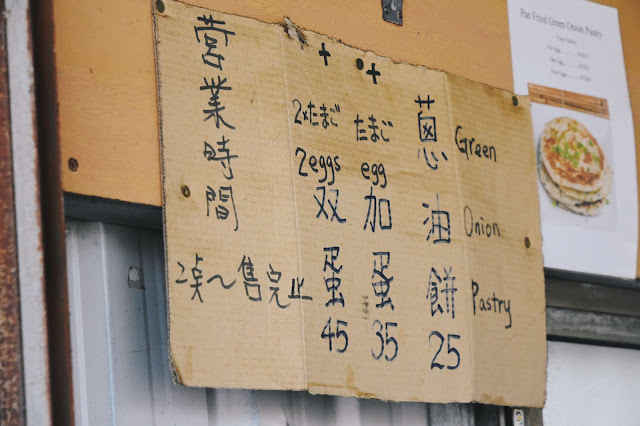 Pan Fried Green Onion Pastry
蔥油餅 25
Green Onion Pastry
+
たまご
egg
加蛋 35
+
2xたまご
2eggs
双蛋 45
営業時間
2点～售完止